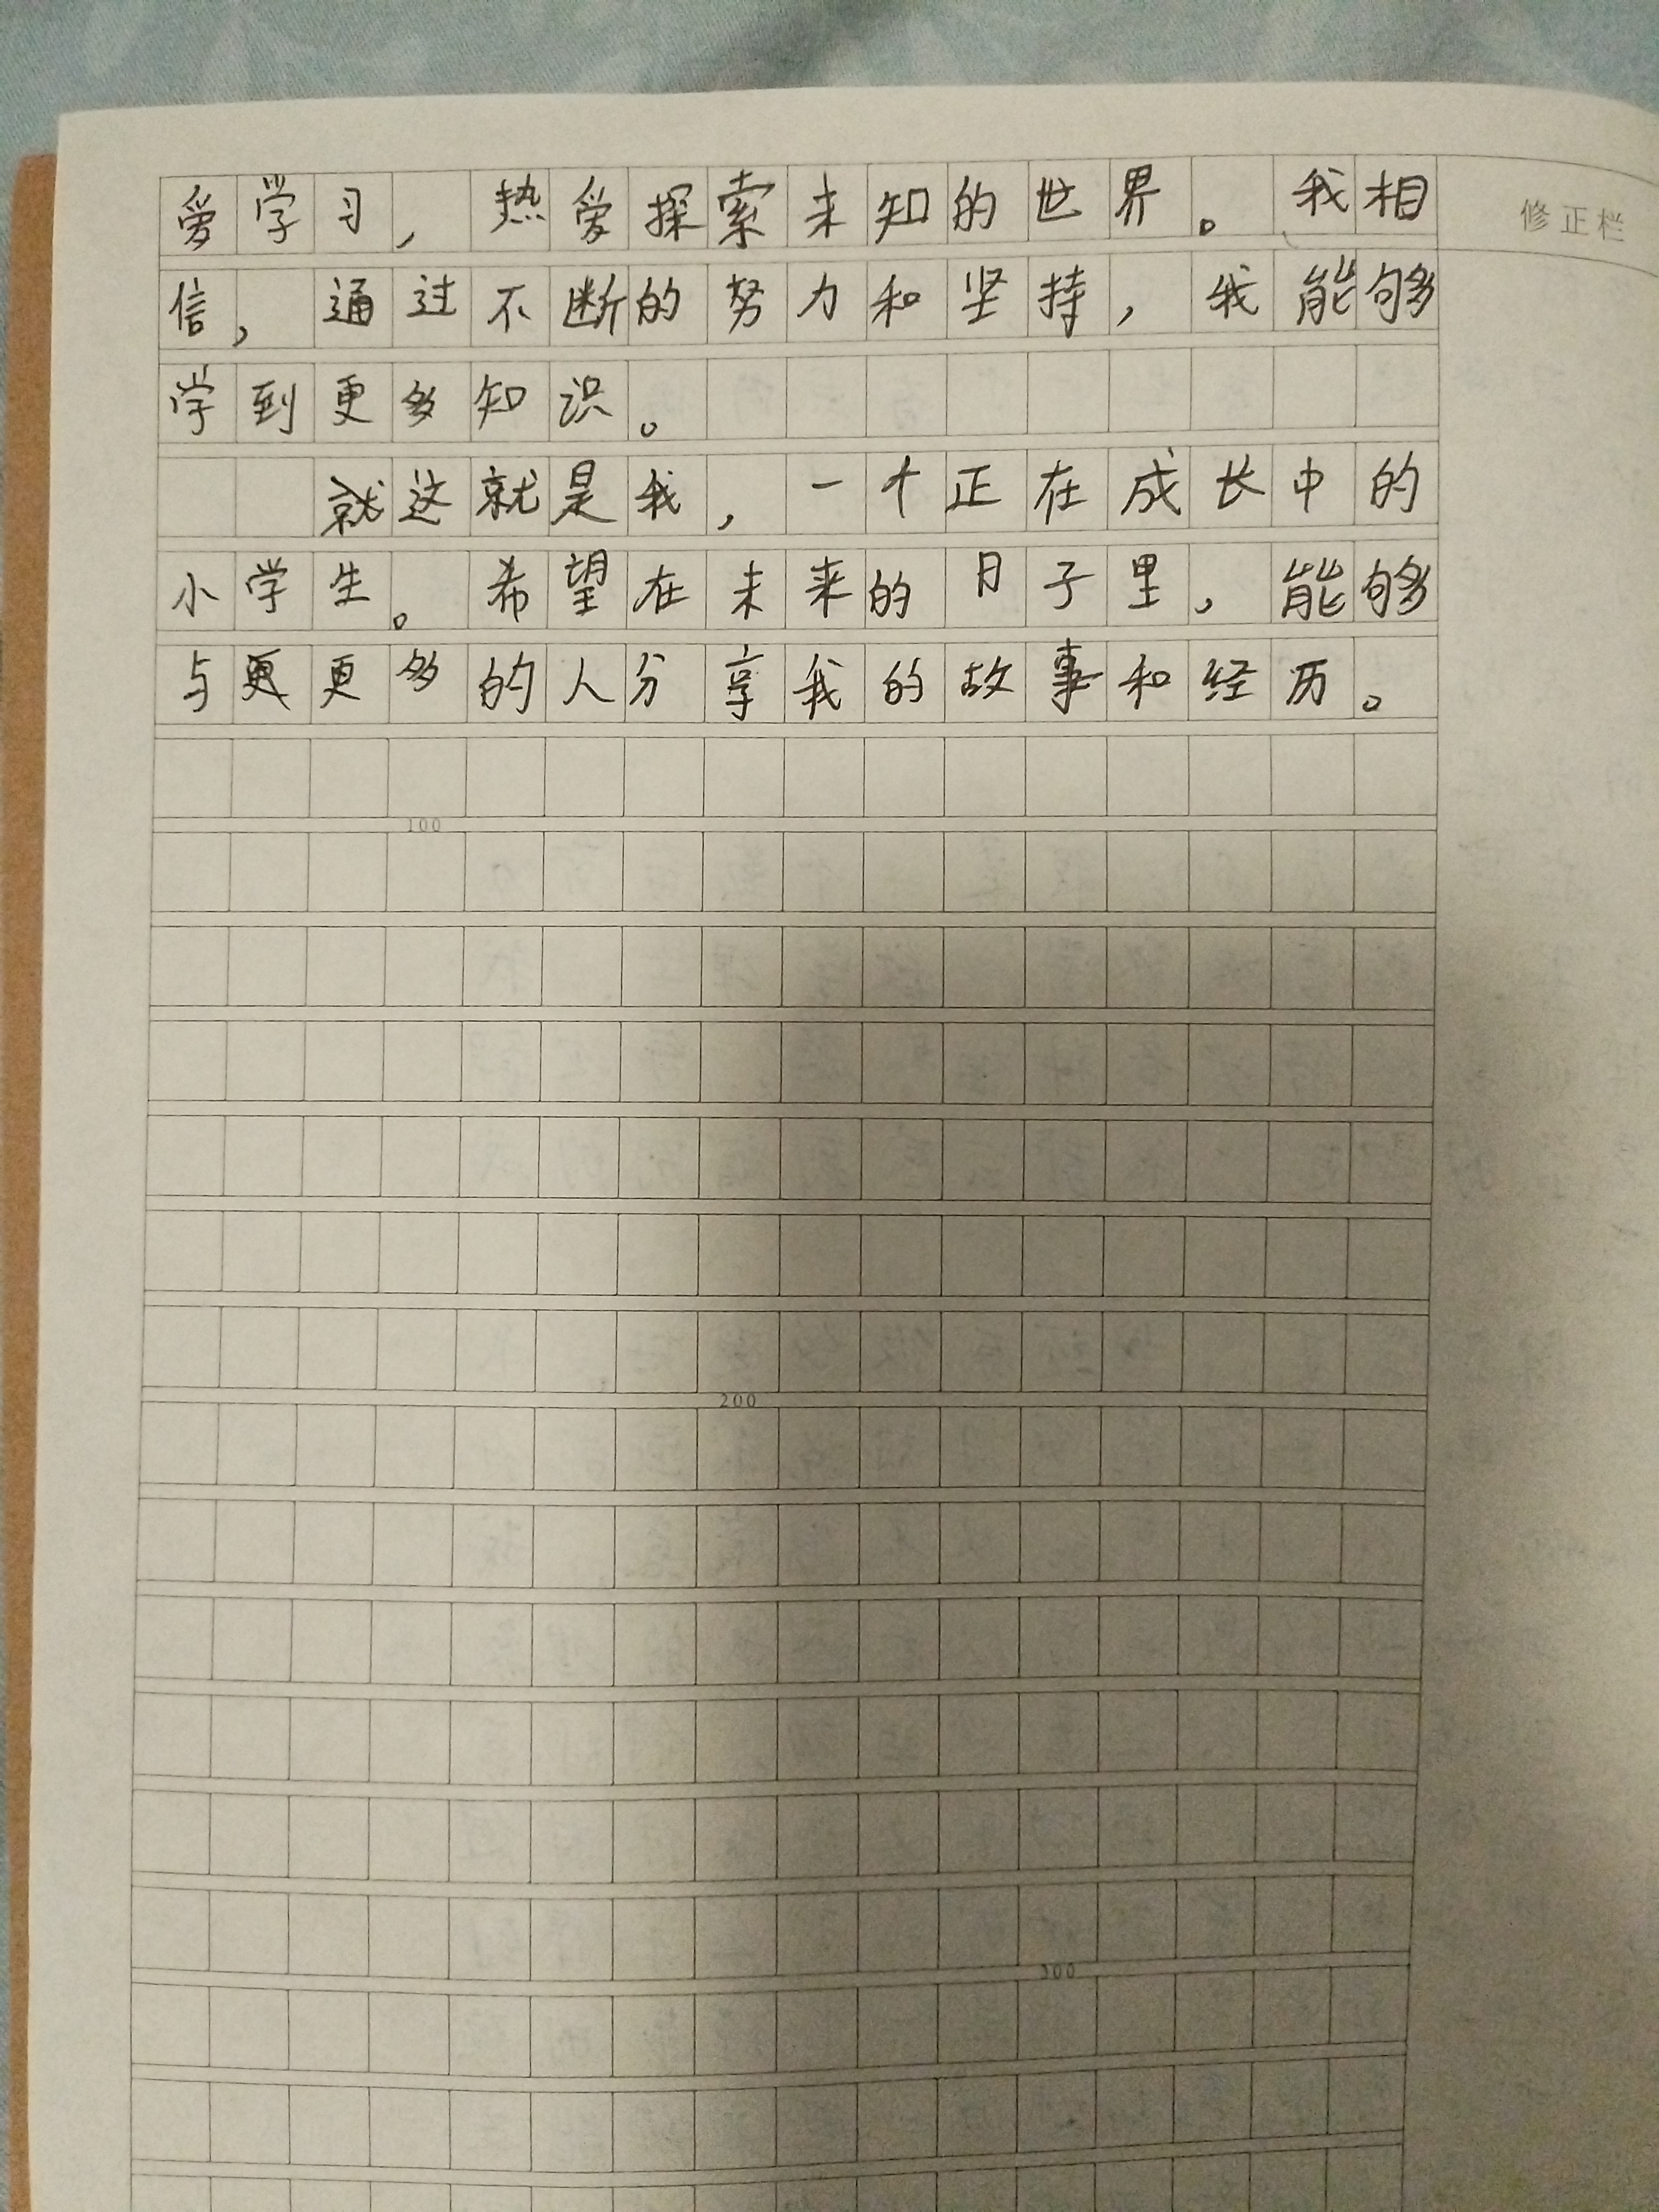 爱学习，热爱探索未知的世界。我相
修正栏
信，通过不断的努力和坚持，我能够
学到更多知识。
就这就是我，一个正在成长中的
小学生。希望在未来的日子里，能够
与更更多的人分享我的故事和经历。
100
200
300